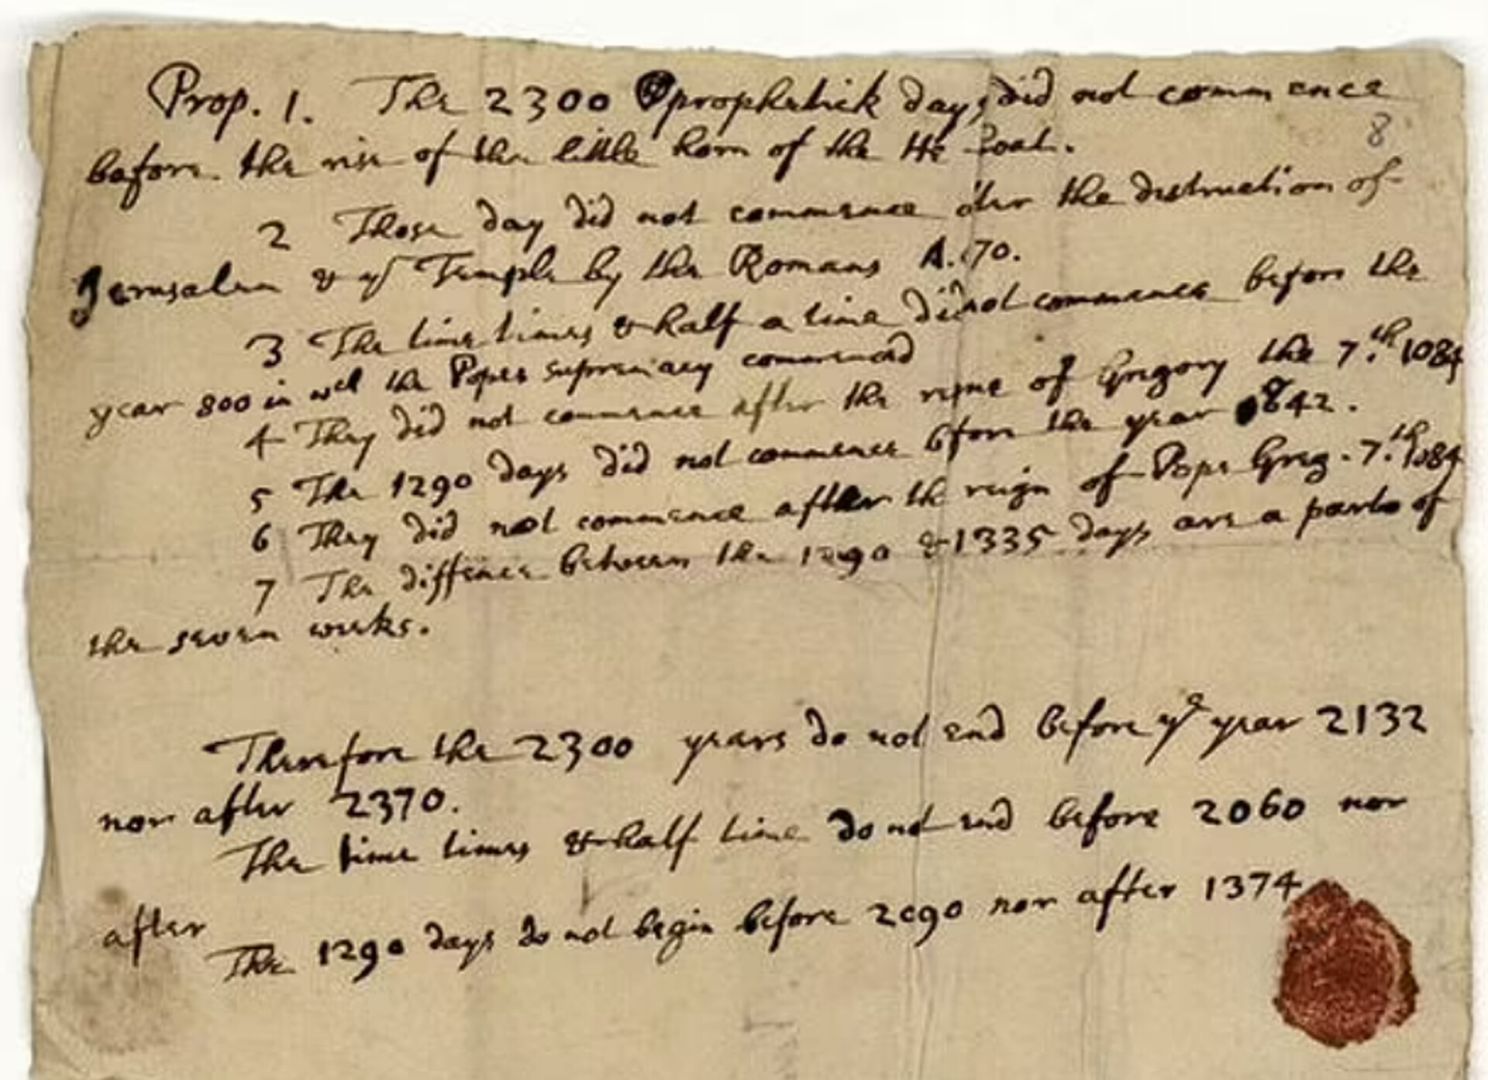 Prop. 1. The 2300 prophetick days did not commence
before the rise of the little horn of the He Goat.
8
2 Those day did not commence after the destruction of
Jerusalem & yͤ Temple by the Romans A. 70.
3 The time times & half a time did not commence before the
year 800 in wͨʰ the Popes supremacy commenced
4 They did not commence after the reigne of Gregory the 7.ᵗʰ 1084
5 The 1290 days did not commence before the year 842.
6 They did not commence after the reign of Pope Greg. 7.ᵗʰ 1084
7 The diffence between the 1290 & 1335 days are a parts of
the seven weeks.
Therefore the 2300 years do not end before yͤ year 2132
nor after 2370.
The time times & half time do not end before 2060 nor
after
The 1290 days do not begin before 2090 nor after 1374